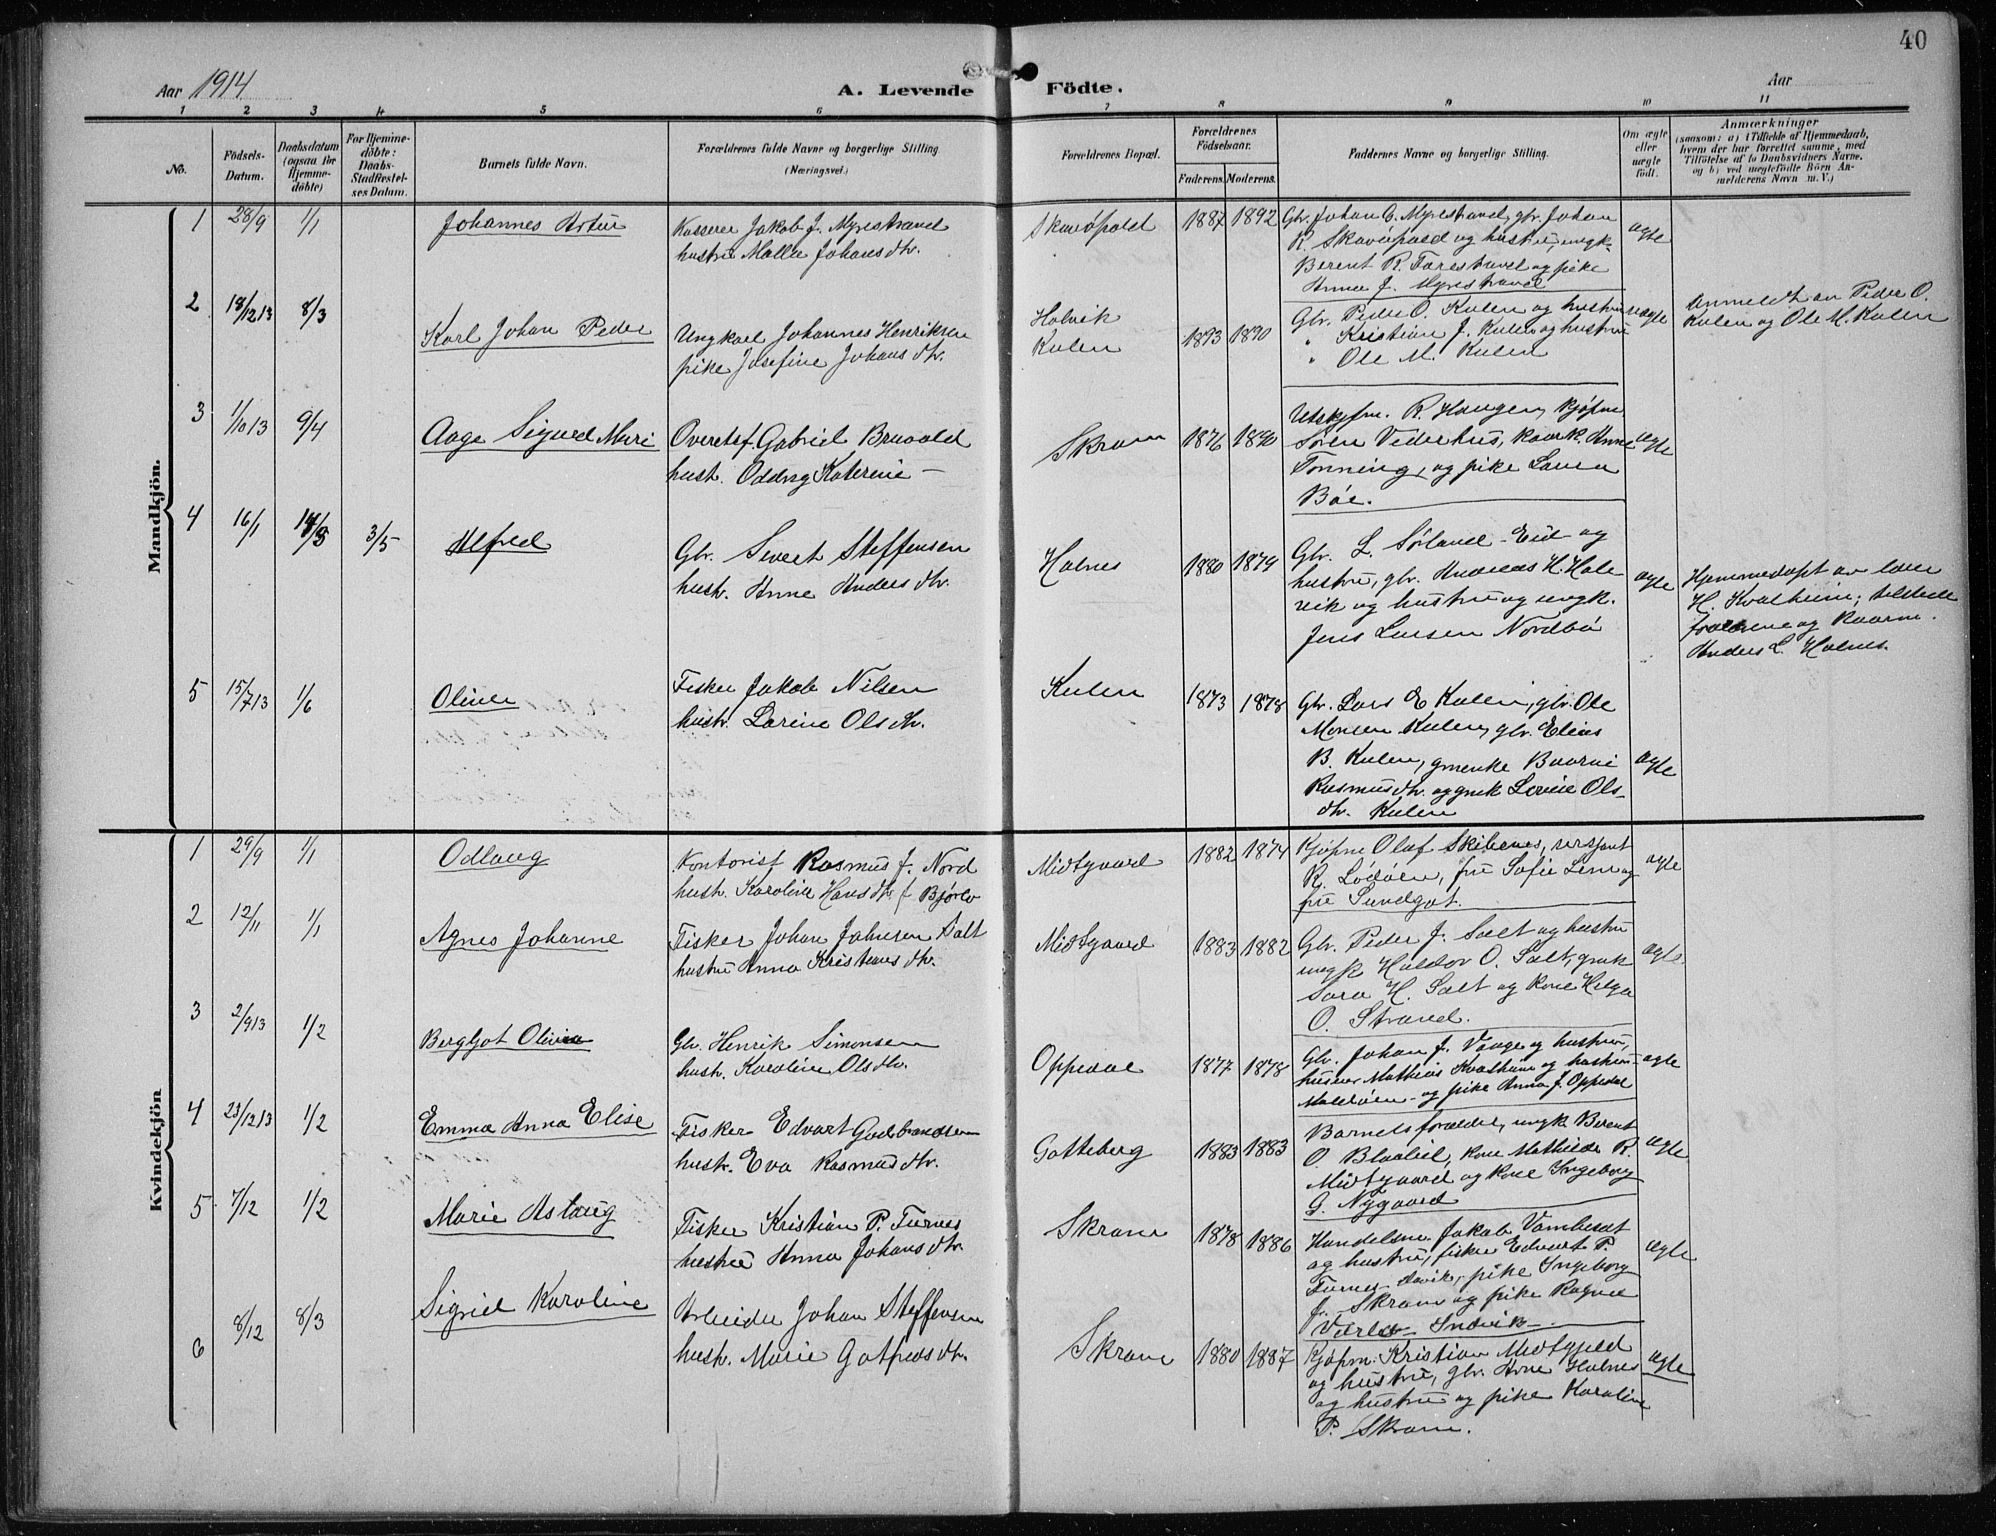 40
Aar 1914
A. Levende Födte.
Aar
1 2 3 4 5 6 7 8 9 10 11
No.
Födsels-
Datum.
Daabsdatum
(ogsaa for
Hjemme-
döbte)
For Hjemme-
döbte:
Daabs-
Stadfæstel-
ses Datum.
Barnets fulde Navn.
Forældrenes fulde Navne og borgerlige Stilling
(Næringsvei.)
Forældrenes Bopæl.
Forældrenes
Födselsaar.
Faderens. Moderens.
Faddernes Navne og borgerlige Stilling.
Om ægte
eller
uægte
födt.
Anmærkninger
(saasom: a) i Tilfælde af Hjemmedaab,
hvem der har forrettet samme, med
Tilföielse af to Daabsvidners Navne.
og b) ved uegtefödte Börn An-
melderens Navn m. V.)
Mandkjön.
1 28/9 1/1
Johannes Artur
Kasserer Jakob J. Myrestrand
hustru Malla Johansdtr.
1887 1892
Gbr. Johan C. Myrestrand, gbr. Johan
R. Skavöpold og hustru, ungk.
Berent R. Farestrand og pike
Anna J. Myrestrand
ægte
2 18/12 13 8/3
Karl Johan Peder
Ungkarl Johannes Henriksen
pike Josefine Johansdtr.
Holvik
Kulen
1893 1890
Gbr. Peder O. Kulen og hustru
" Kristian J. Kulen og hustru
" Ole M. Kulen
uægte
Anmeldt av Peder O.
Kulen og Ole M. Kulen
3 1/10 13 9/4
Aage Sigurd Muri
Overetsf. Gabriel Bruvold
hust. Oddvey Katerine —
Skram
1876 1890
R. Haugen, kjøpm
Sören Vederhus, Anna
Tonning, og pike Laura
Böe.
ægte
4 16/1 14/3 3/5
Alfred
Gbr. Sivert Steffensen
hust. Anne Andersdtr.
Holnes
1880 1879
Gbr. L. Sørland - Eid - og
hustru, gbr. Andreas H. Hole
vik og hustru og ungk.
Jens Larsen Nordbö
ægte
Hjemmedøpt av
H. Kvalheim; tilstede
forældrene og
Anders L. Holnes.
5 15/7 13 1/6
Oliver
Fisker Jakob Nilsen
hust. Lovine Olsdtr.
Kulen
1873 1878
Gbr. Lars E Kulen, gbr. Ole
Monsen Kulen, gbr. Elias
B. Kulen, gmenke
Rasmusdtr. og Lovise Ols-
dtr. Kulen
ægte
Kvindekjön
1 29/9 1/1
Odlaug
Kontorist Rasmus J. Nord
hust. Karoline Hansdtr. f. Bjørlo
Midtgaard
1882 1874
Kjøpm Olaf Skibenes, sersjant
R. Lödöen, fru Sofie Lem og
fru Sundgot.
ægte
2 12/11 1/1
Agnes Johanne
Fisker Johan Johnsen Salt
hustru Anna Kristiansdtr.
Midtgaard
1883 1882
Gbr. Peder J. Salt og hustru
ungk Haldor O. Salt,
Sara H. Salt og kone Helga
O. Strand.
ægte
3 2/9 13 1/2
Bergljot Olivia
Gbr. Henrik Simonsen
hust. Karoline Olsdtr.
Oppedal
1877 1878
Gbr. Johan J. Vaage og hustru,
husm Mathias Kvalheim og hustru
Maldöen - og pike Anna J. Oppedal
ægte
4 23/12 13 1/2
Emma Anna Elise
Fisker Edvart Gudbrandsen
hust. Eva Rasmusdtr.
Gotteberg
1883 1883
Barnets forældre, ungk Berent
O. Blaalid, kone Mathilde R.
Midtgaard og kone Ingeborg
G. Nygaard
ægte
5 7/12 1/2
Marie Aslaug
Fisker Kristian P. Turnes
hustru Anna Johansdtr.
Skram
1878 1886
Handelsm Jakob Vambeset
og hustru, fisker Edvart P.
pike Ingeborg
J. Skram og pike Ragna
Indvik
ægte
6 8/12 8/3
Sigrid Karoline
Arbeider Johan Steffensen
hust. Marie Gotfredsdtr.
Skram
1880 1887
Kjøpm. Kristian Midtgaard
og hustru, gbr. Arne Holnes
og hustru og pike Karoline
P. Skram.
ægte